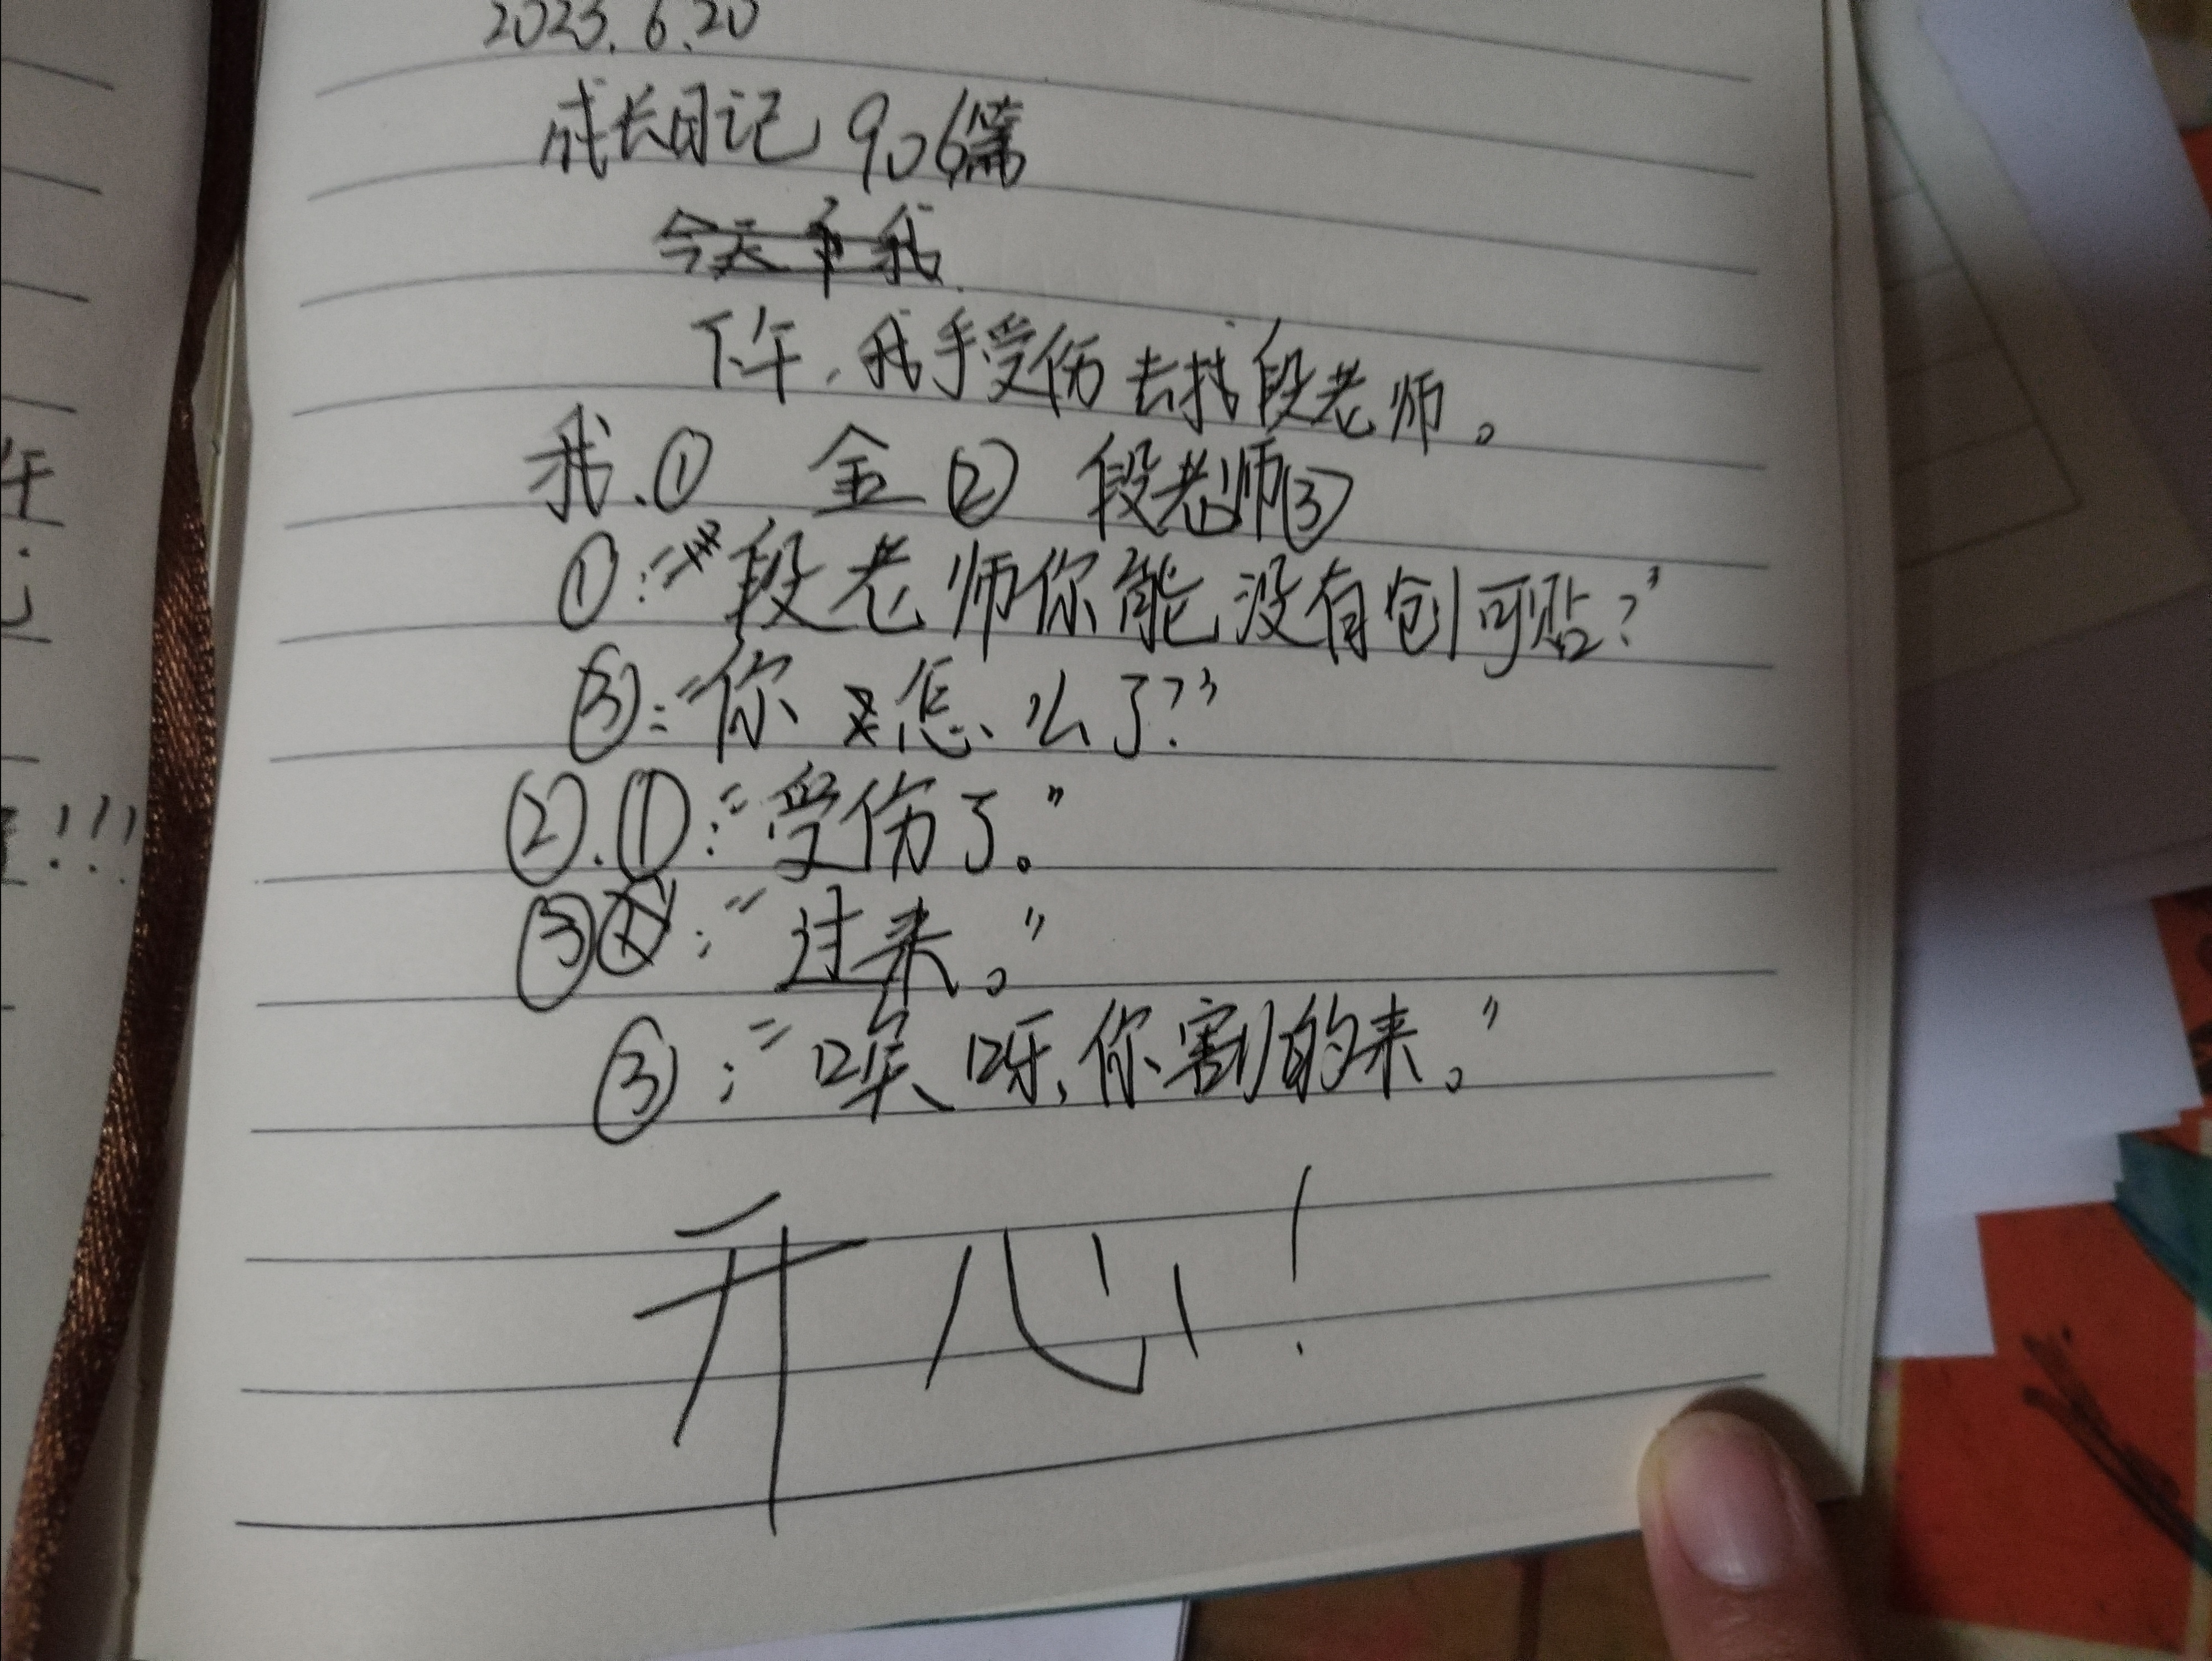 2023.6.20
成长日记906篇
今天下我
下午，我手受伤去找段老师。
我.① 金② 段老师③
①：“段老师你能没有创可贴？”
③：“你怎么了？”
②.①：“受伤了。”
③：“过来。”
③：“唉呀，你割的来。”
开心！
午
!!!